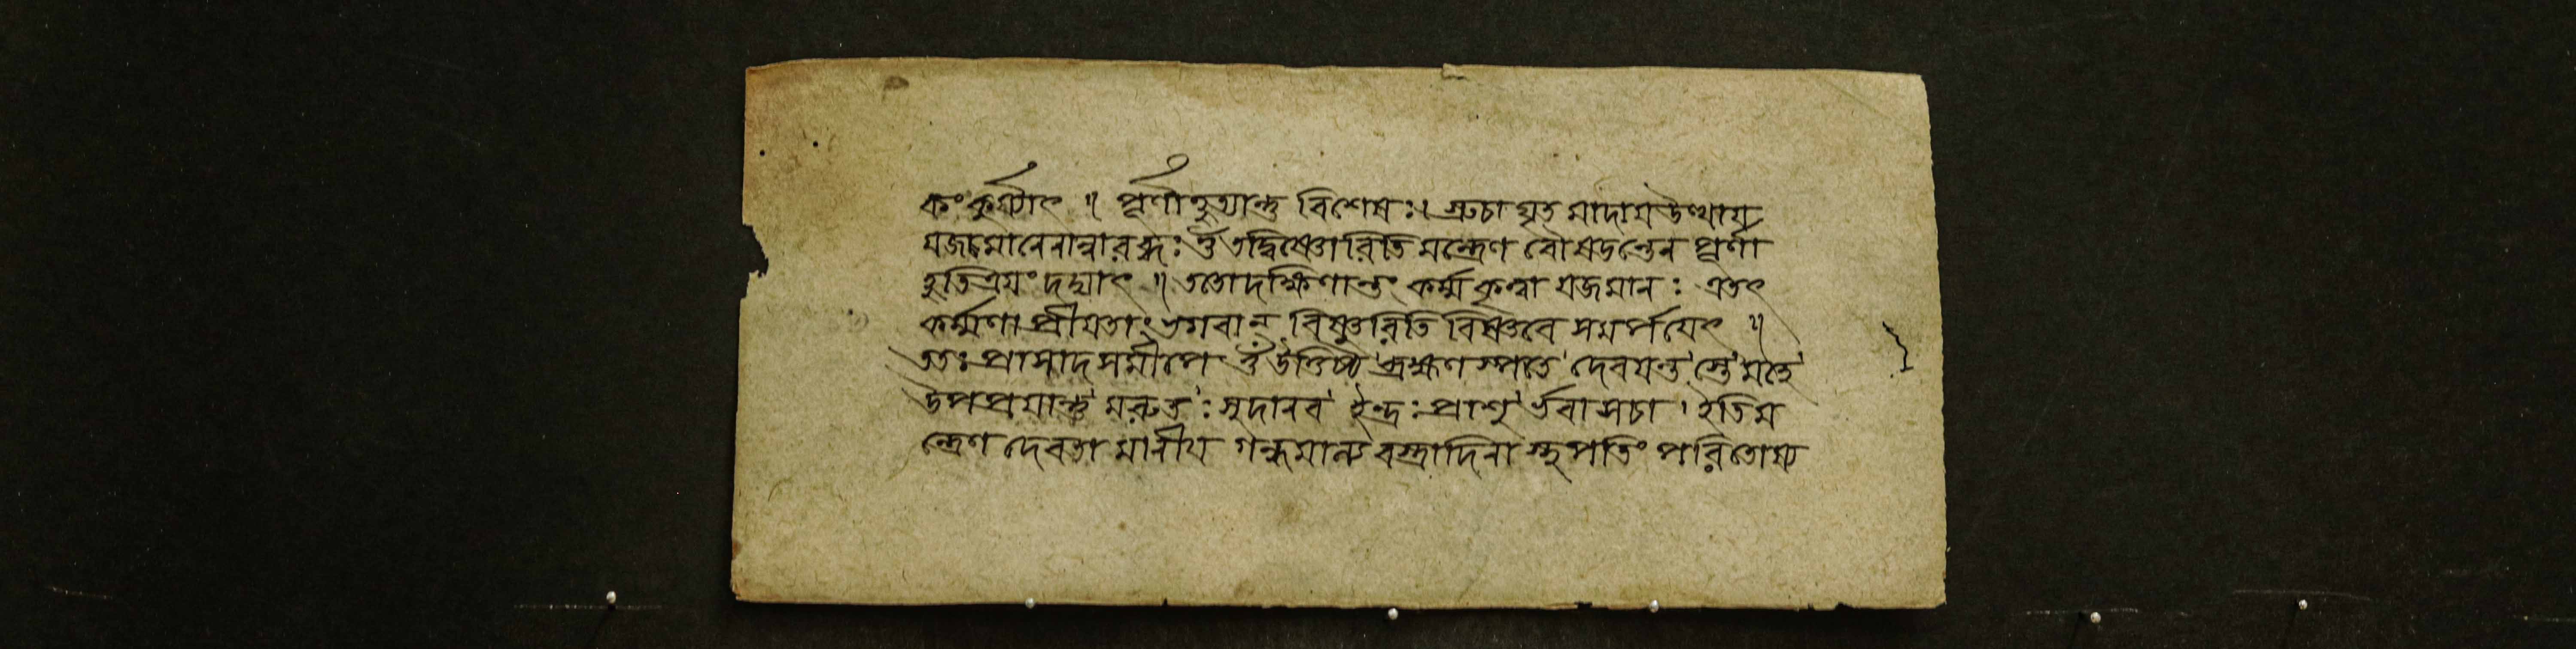 কং কুর্য্যাৎ ॥ পূর্ণাহুত্যান্তু বিশেষঃ। স্রুচা ঘৃতমাদায় উত্থায়
যজমানেনান্বারব্ধঃ ওঁ তদ্বিষ্ণোরিতি মন্ত্রেণ বৌষডন্তেন পূর্ণা
হুতিত্রয়ং দদ্যাৎ ॥ ততো দক্ষিণান্তং কর্ম্ম কৃত্বা যজমানঃ এতৎ
কর্ম্মণা প্রীয়তাং ভগবান্ বিষ্ণুরিতি বিষ্ণবে সমর্পয়েৎ ॥
ততঃ প্রাসাদসমীপে ওঁ উত্তিষ্ঠ ব্রহ্মণস্পতে দেবয়ন্তস্তেমহে
উপপ্রয়ান্তু মরুতঃ সুদানব ইন্দ্রঃ প্রাশূর্ভবা সচা। ইতি ম
ন্ত্রেণ দেবতামানীয় গন্ধমাল্য বস্ত্রাদিনা স্থপতিং পরিতোষ্য